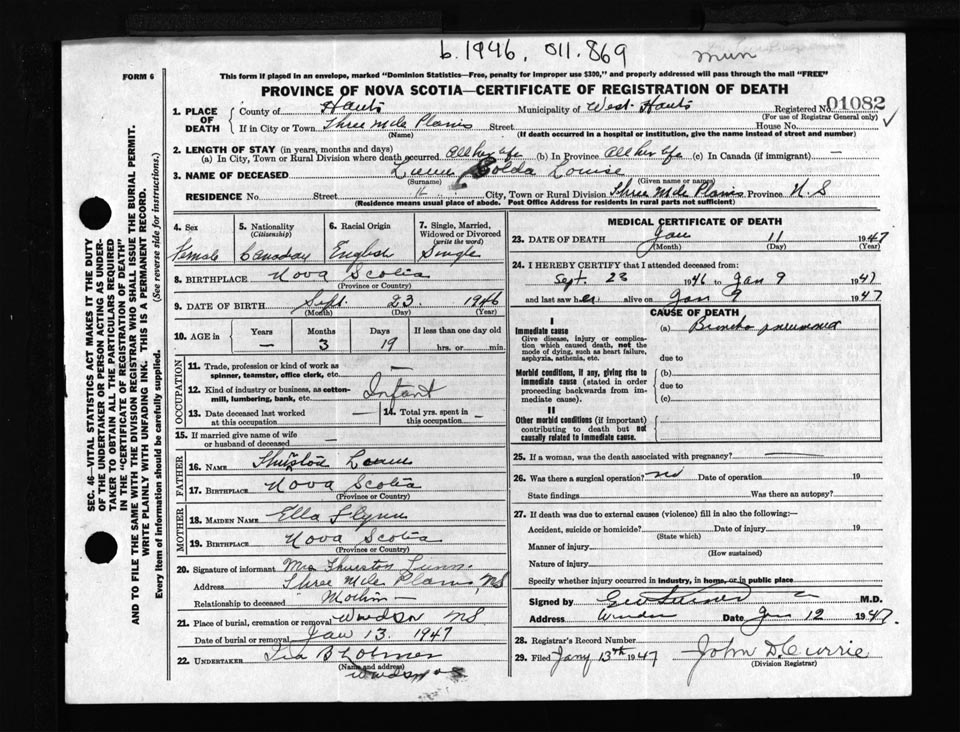 b. 1946, 011.869
Mun
FORM 6
This form if placed in an envelope, marked "Dominion Statistics—Free, penalty for improper use $300," and properly addressed will pass through the mail "FREE"
PROVINCE OF NOVA SCOTIA—CERTIFICATE OF REGISTRATION OF DEATH
1. PLACE OF DEATH County of Hants Municipality of West Hants Registered No. 01082
(For use of Registrar General only)
If in City or Town Three Mile Plains Street House No.
(Name) (If death occurred in a hospital or institution, give the name instead of street and number)
2. LENGTH OF STAY (in years, months and days)
(a) In City, Town or Rural Division where death occurred All her life (b) In Province All her life (c) In Canada (if immigrant) —
3. NAME OF DECEASED Golda Louise
(Surname) (Given name or names)
RESIDENCE No. Street City, Town or Rural Division Three Mile Plains Province N.S
(Residence means usual place of abode. Post Office Address for residents in rural parts not sufficient)
4. Sex Female
5. Nationality (Citizenship)
6. Racial Origin English
7. Single, Married, Widowed or Divorced (write the word) Single
8. BIRTHPLACE Nova Scotia
(Province or Country)
9. DATE OF BIRTH Sept. 23. 1946
(Month) (Day) (Year)
10. AGE in Years — Months 3 Days 19 If less than one day old hrs. or min.
OCCUPATION
11. Trade, profession or kind of work as spinner, teamster, office clerk, etc. —
12. Kind of industry or business, as cotton-mill, lumbering, bank, etc. Infant
13. Date deceased last worked at this occupation — 14. Total yrs. spent in this occupation —
15. If married give name of wife or husband of deceased —
FATHER
16. NAME
17. BIRTHPLACE Nova Scotia
(Province or Country)
MOTHER
18. MAIDEN NAME Ella Flynn
19. BIRTHPLACE Nova Scotia
(Province or Country)
20. Signature of informant Mrs Thurston Lunn.
Address Three Mile Plains, NS
Relationship to deceased Mother —
21. Place of burial, cremation or removal Windsor NS
Date of burial or removal Jan 13. 1947
22. UNDERTAKER Holmes
(Name and address)
Windsor NS
MEDICAL CERTIFICATE OF DEATH
23. DATE OF DEATH Jan 11 1947
(Month) (Day)
24. I HEREBY CERTIFY that I attended deceased from:
Sept. 23 1946 to Jan 9 1947
and last saw her alive on Jan 9 1947
CAUSE OF DEATH
I
Immediate cause
Give disease, injury or complication which caused death, not the mode of dying, such as heart failure, asphyxia, asthenia, etc.
(a) Broncho pneumonia
due to
Morbid conditions, if any, giving rise to immediate cause (stated in order proceeding backwards from immediate cause).
(b)
due to
(c)
II
Other morbid conditions (if important) contributing to death but not causally related to immediate cause.
25. If a woman, was the death associated with pregnancy? —
26. Was there a surgical operation? no Date of operation 19
State findings Was there an autopsy?
27. If death was due to external causes (violence) fill in also the following:—
Accident, suicide or homicide? Date of injury 19
(State which)
Manner of injury
(How sustained)
Nature of injury
Specify whether injury occurred in industry, in home, or in public place
Signed by M.D.
Address Windsor Date Jan 12 1947
28. Registrar's Record Number
29. Filed Jany 13th 1947 John D. Currie
(Division Registrar)
SEC. 46—VITAL STATISTICS ACT MAKES IT THE DUTY
OF THE UNDERTAKER OR PERSON ACTING AS UNDER-
TAKER TO OBTAIN ALL THE PARTICULARS REQUIRED
IN THE "CERTIFICATE OF REGISTRATION OF DEATH"
AND TO FILE THE SAME WITH THE DIVISION REGISTRAR WHO SHALL ISSUE THE BURIAL PERMIT.
WRITE PLAINLY WITH UNFADING INK. THIS IS A PERMANENT RECORD.
Every item of information should be carefully supplied. (See reverse side for instructions.)